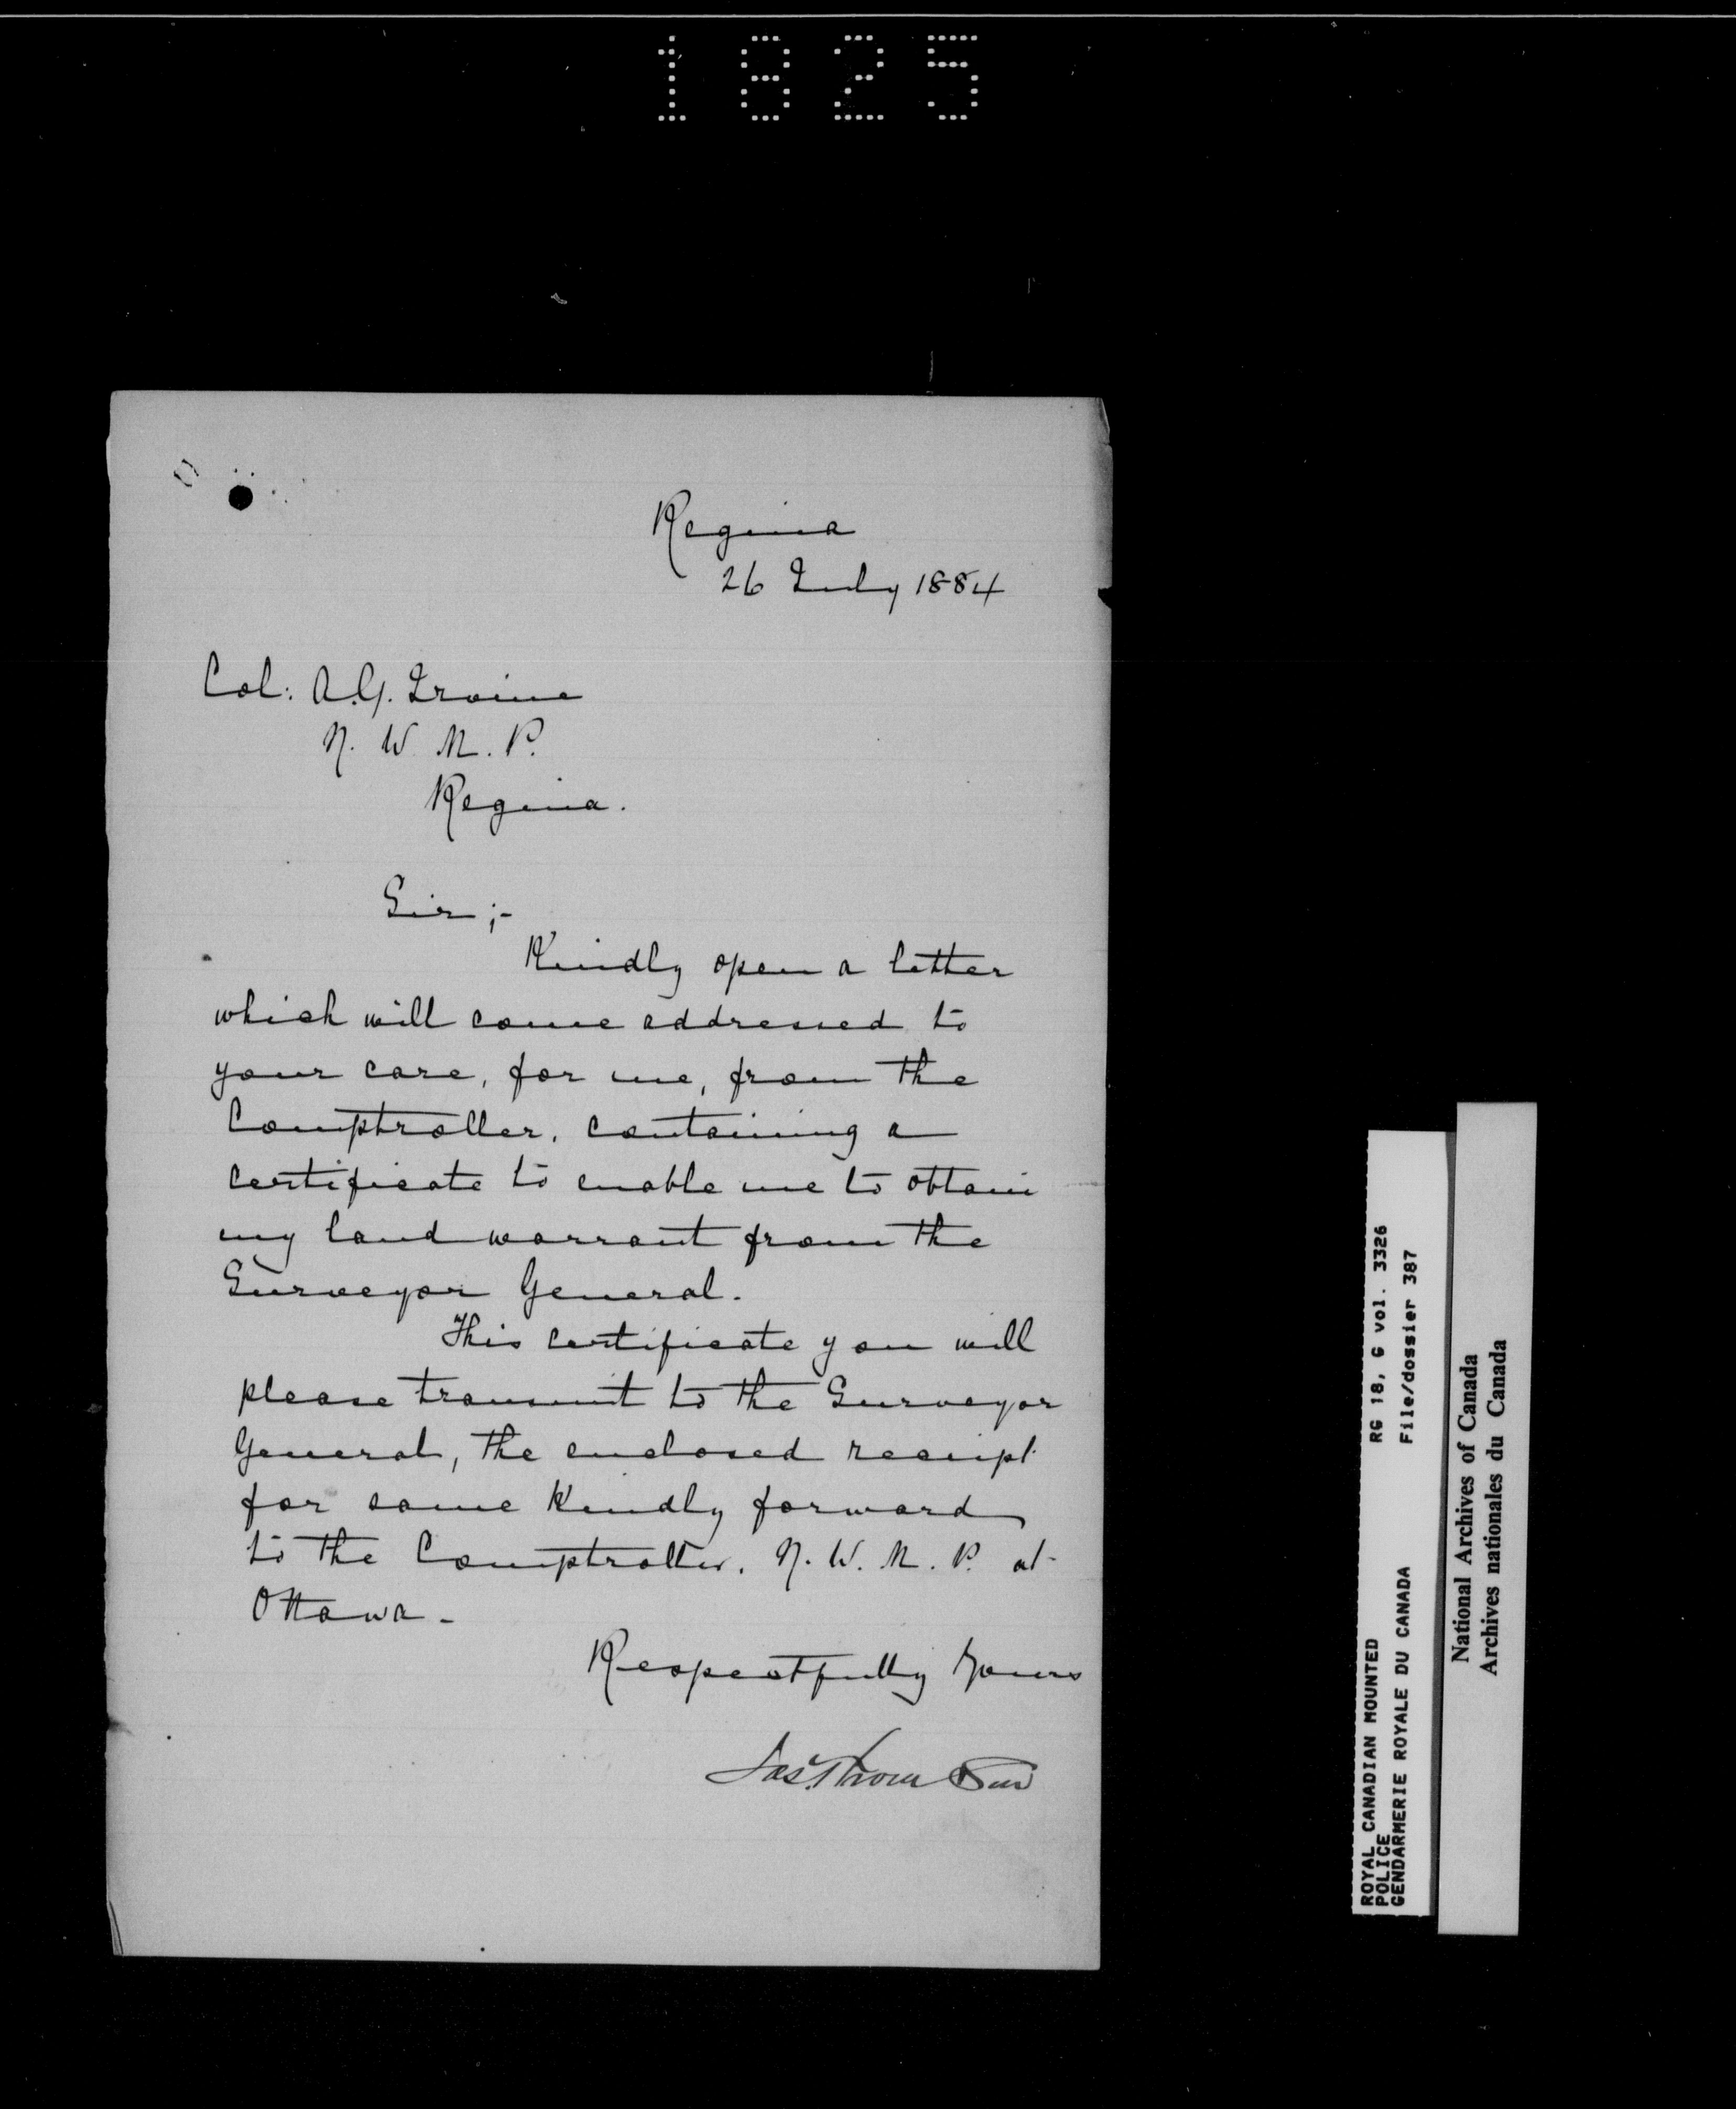 1825
Regina
26 July 1884
Col: A.G. Irvine
N. W. M. P.
Regina.
Sir ;-
Kindly open a letter
which will come addressed to
your care, for me, from the
Comptroller, containing a
certificate to enable me to obtain
my land warrant from the
Surveyor General.
This certificate you will
please transmit to the Surveyor
General, the enclosed receipt
for same kindly forward
to the Comptroller. N. W. M. P. at
Ottawa -
Respectfully yours
Jas.
ROYAL CANADIAN MOUNTED
POLICE
GENDARMERIE ROYALE DU CANADA
RG 18, G vol. 3326
File/dossier 387
National Archives of Canada
Archives nationales du Canada